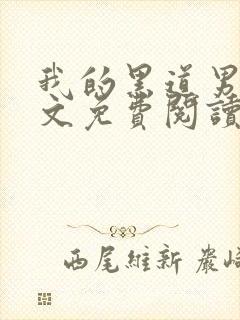 我的黑道男
文免費閱讀
西尾維新 巖崎